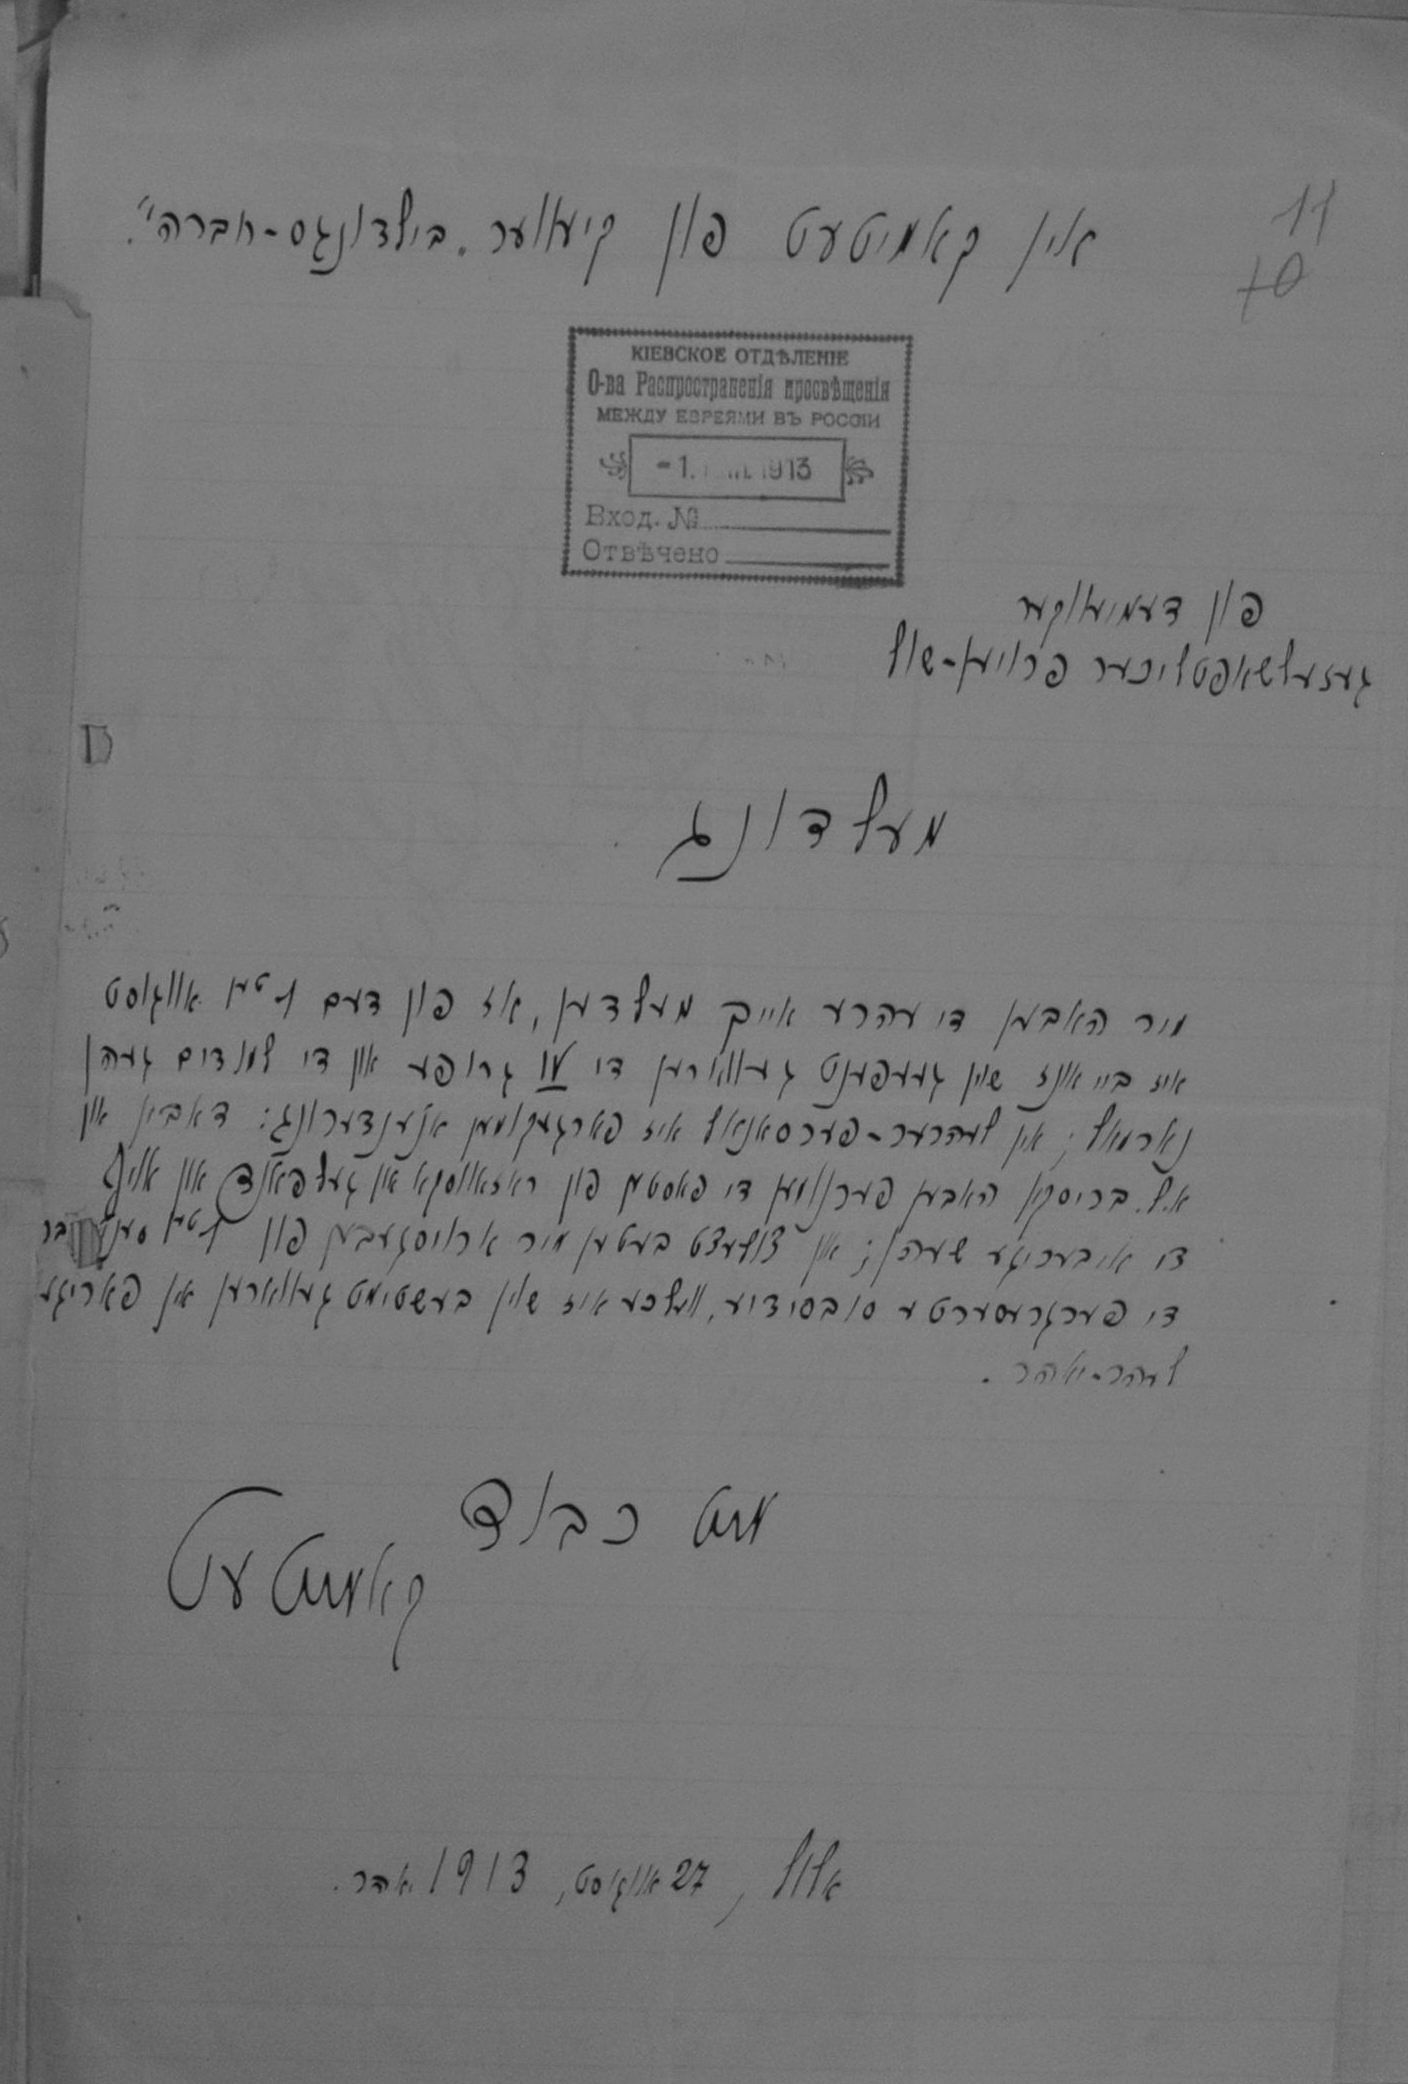 11
10
אין קאמיטעט פון קיעווער „בילדונגס-חברה".
КІЕВСКОЕ ОТДѢЛЕНІЕ
О-ва Распространенія просвѣщенія
МЕЖДУ ЕВРЕЯМИ ВЪ РОССІИ
-1. 1913
Вход. №
Отвѣчено
פון דעמיעווקער
געזעלשאפטליכער פרויען-שול
מעלדונג
מיר האבען די עהרע אייך מעלדען, אז פון דעם טען אווגוסט
איז ביי אונז שוין געעפענט געווארען די גרופע און די למודים געהן
נארמאל; אין לעהרער-פערסאנאל איז פארגעקומען אנ'ענדערונג: דאבין און
א.ל. בריסקין האבען פערנומען די פאסטען פון ראזאווסקא און געלפאנד און אויף
די איבעריגע שטעהן; און צולעצט בעטען מיר ארויסגעבען פון טען
די פערגרעסערטע סובסידיע, וועלכע איז שוין בעשטימט געווארען אין פאריגע
לעהר-יאהר.
מיט כבוד
קאמיטעט
אלול, 27 אווגוסט, 1913 יאהר.